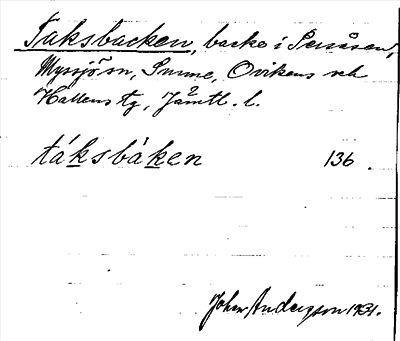 Taksbacken, backe i Persåsen,
Myssjö sn, Sunne, Ovikens och
Hallens tg, Jämtl. l.
táksbáken 136.
John Anderson 1931.